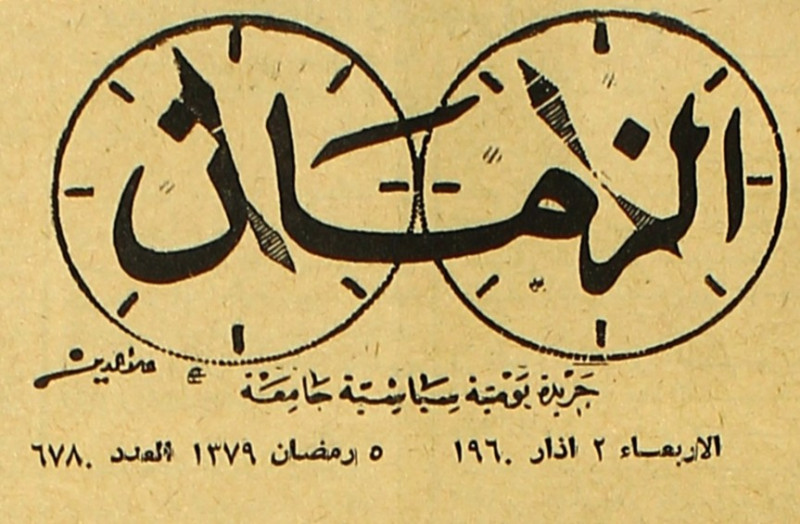 الزمان
علاء الدين
جريدة يومية سياسية جامعة
الاربعاء ٢ اذار ١٩٦٠ ٥ رمضان ١٣٧٩ العدد ٦٧٨٠